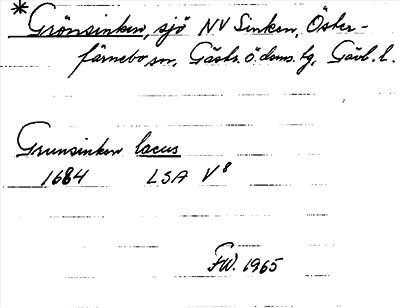 *Grönsinken, sjö NV Sinken, Öster-
färnebo sn, Gästr. ö. doms. tg, Gävl. l.
Grunsinken lacus
1684 LSA V⁸
FW. 1965